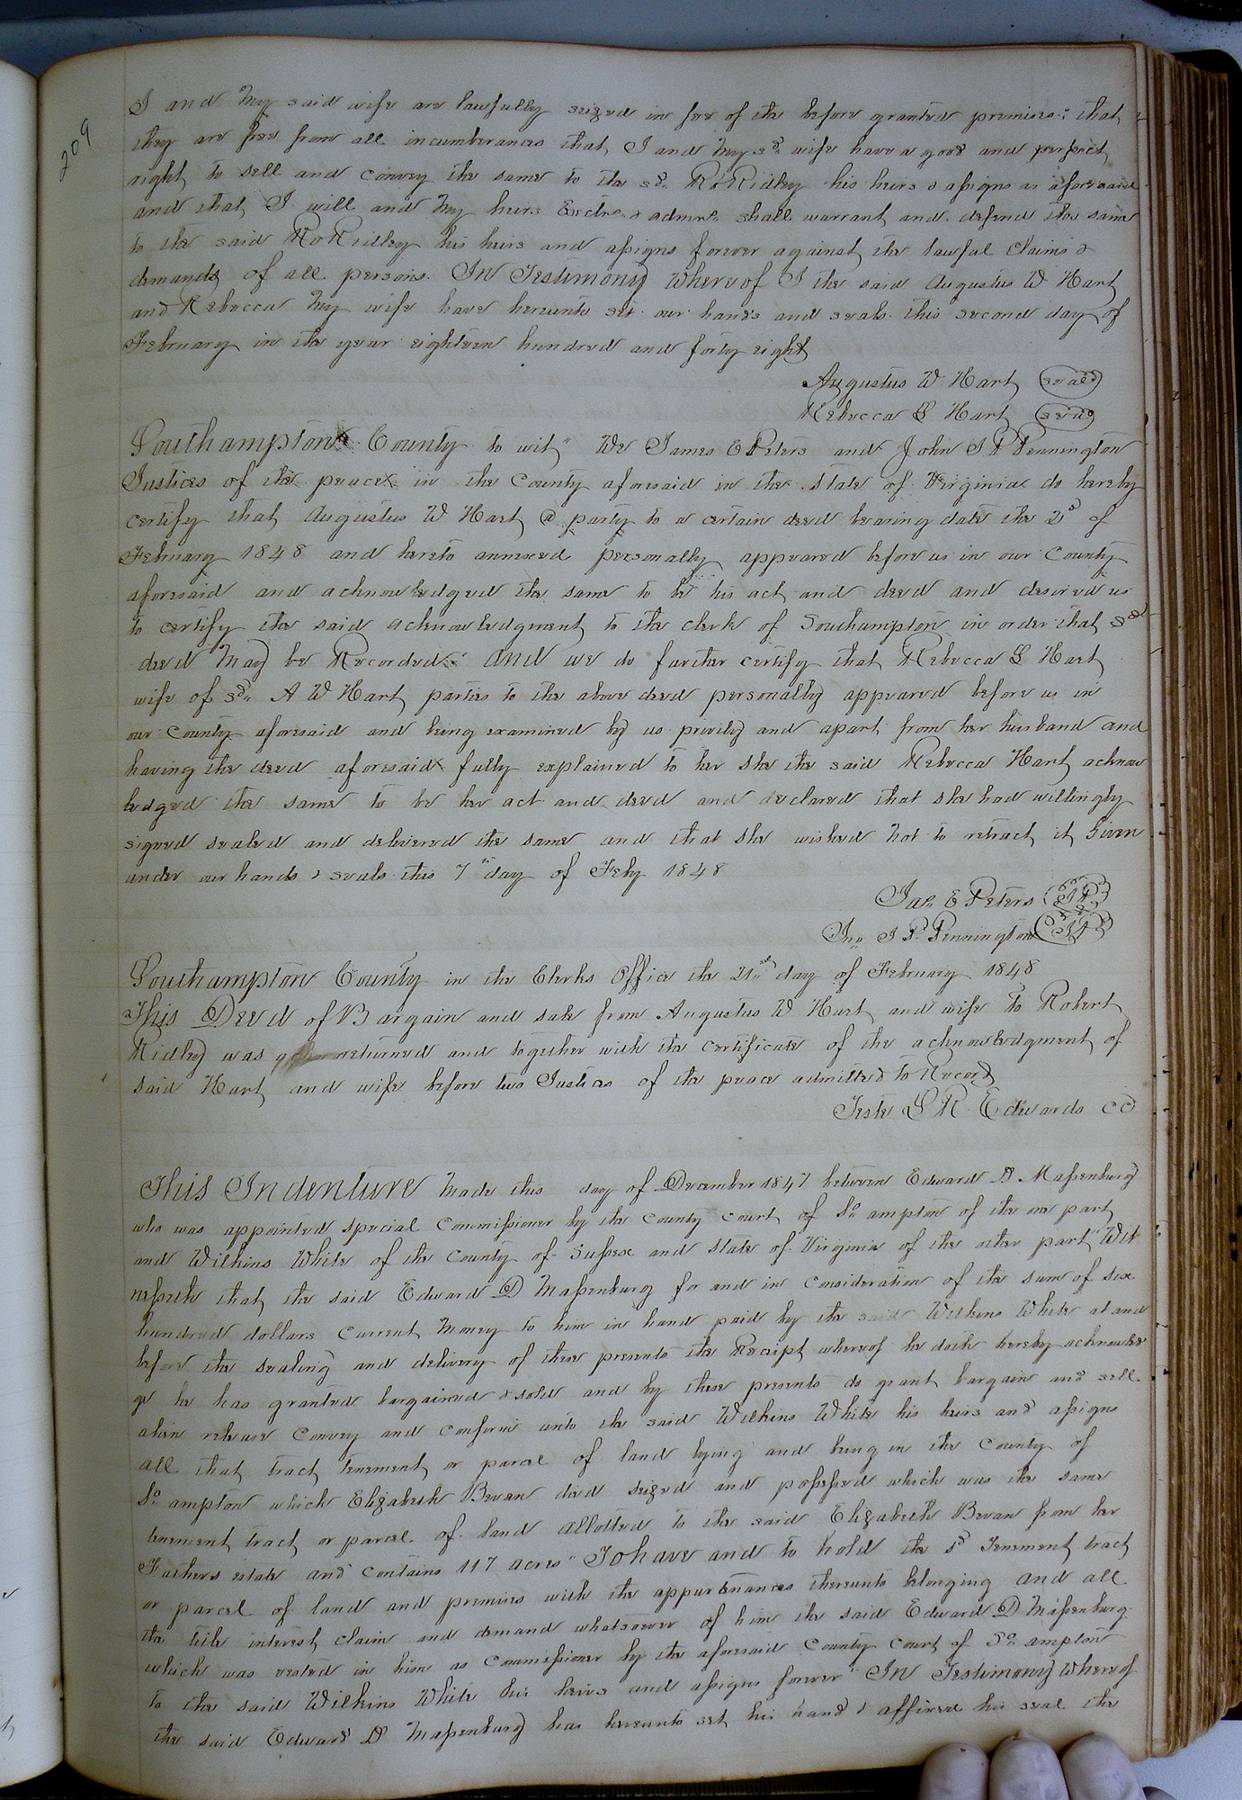 209
I and my said wife are lawfully seized in fee of the before granted premises: that
they are free from all incumberances that I and my sd. wife have a good and perfect
right to sell and convey the same to the sd. Ro Ridley his heirs & assigns as aforesaid
and that I will and my heirs Exctrs. & admrs. shall warrant and defend the same
to the said Ro Ridley his heirs and assigns forever against the lawful claims &
demands of all persons. In Testimony Whereof I the said Augustus W Hart
and Rebecca my wife have hereunto set our hands and seals this second day of
February in the year eighteen hundred and forty eight
Augustus W Hart (seal)
Rebecca S Hart (seal)
Southampton County to wit" We James E Peters and John S P Pennington
Justices of the peace in the County aforesaid in the State of Virginia do hereby
certify that Augustus W Hart a party to a certain deed bearing date the 2d of
February 1848 and hereto annexed personally appeared before us in our County
aforesaid and acknowledged the same to be his act and deed and desired us
to certify the said acknowledgment to the clerk of Southampton in order that sd
deed may be Recorded: And we do further certify that Rebecca S Hart
wife of sd. A W Hart parties to the above deed personally appeared before us in
our County aforesaid and being examined by us privily and apart from her husband and
having the deed aforesaid fully explained to her she the said Rebecca Hart acknow
ledged the same to be her act and deed and declared that she had willingly
signed sealed and delivered the same and that she wished not to retract it Given
under our hands & seals this 7" day of Feby 1848
Jas. E Peters (JP)
Jno. S P. Pennington (JP)
Southampton County in the Clerks Office the 21st day of February 1848
This Deed of Bargain and sale from Augustus W Hart and wife to Robert
Ridley was returned and together with the certificate of the acknowledgment of
said Hart and wife before two Justices of the peace admitted to Record
Teste L R Edwards CC
This Indenture made this day of December 1847 between Edward D Massenburg
who was appointed special Commissioner by the County Court of So. ampton of the one part
and Wilkins White of the County of Sussex and State of Virginia of the other part" Wit
nesseth that the said Edward D Massenburg for and in consideration of the sum of six
hundred dollars current money to him in hand paid by the said Wilkins White at and
before the sealing and delivery of these presents the Receipt whereof he doth hereby acknowled
ge he has granted bargained & sold and by these presents do grant bargain and sell
alien release convey and conform unto the said Wilkins White his heirs and assigns
all that tract tenement or parcel of land lying and being in the County of
So. ampton which Elizabeth Bevan died seized and possessed which was the same
tenement tract or parcel of land allotted to the said Elizabeth Bevan from her
Fathers estate and contains 117 acres" To have and to hold the sd Tenement tract
or parcel of land and premises with the appurtenances thereunto belonging and all
the title interest claim and demand whatsoever of him the said Edward D Massenburg
which was vested in him as Commissioner by the aforesaid County Court of So. ampton
to the said Wilkins White his heirs and assigns forever" In Testimony Whereof
the said Edward D Massenburg has hereunto set his hand & affixed his seal the